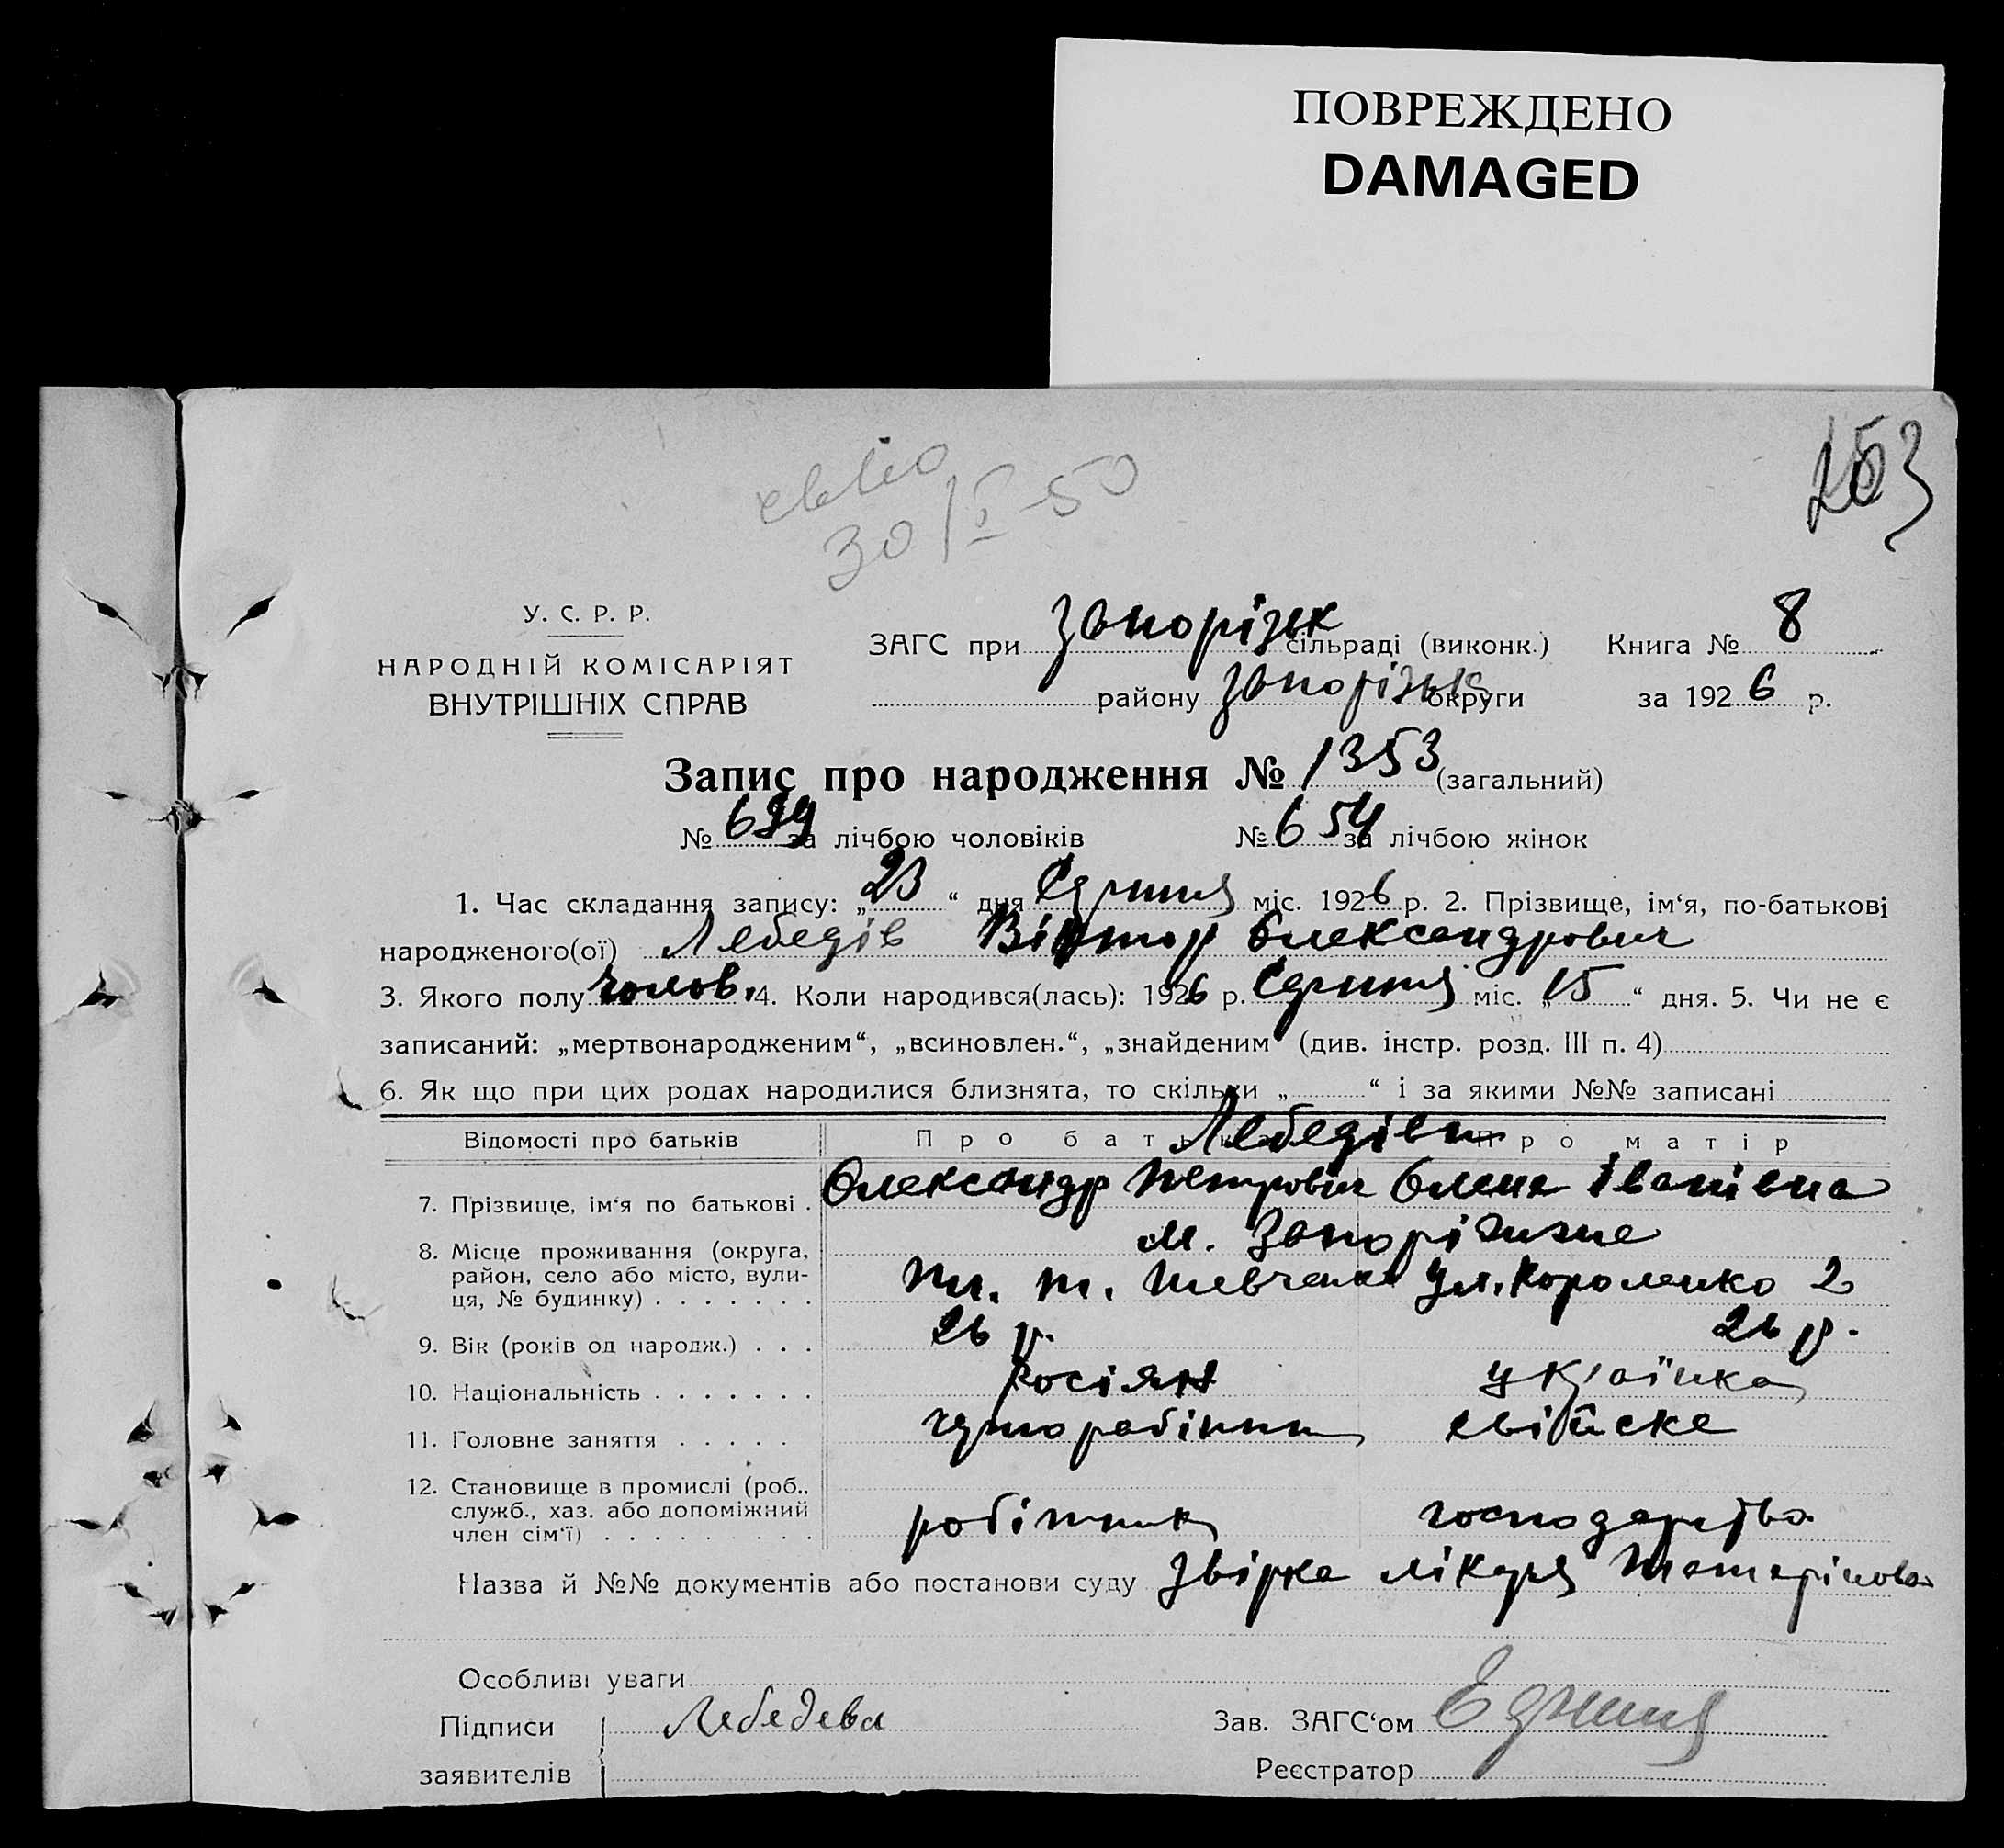 ПОВРЕЖДЕНО
DAMAGED
253
30/I-50
У. С. Р. Р.
НАРОДНІЙ КОМІСАРІЯТ
ВНУТРІШНІХ СПРАВ
ЗАГС при Запорізьк сільраді (виконк.) Книга № 8
району Запорізьк округи за 1926 р.
Запис про народження № 1353 (загальний)
№ 699 за лічбою чоловіків № 654 за лічбою жінок
1. Час складання запису: „23“ дня Серпня міс. 1926 р. 2. Прізвище, ім‘я, по-батькові
народженого(ої) Лебедів Віктор Олександрович
3. Якого полу чолов. 4. Коли народився(лась): 1926 р. Серпня міс. „15“ дня. 5. Чи не є
записаний: „мертвонародженим“, „всиновлен.“, „знайденим“ (див. інстр. розд. III п. 4)
6. Як що при цих родах народилися близнята, то скільки „ “ і за якими №№ записані
Відомості про батьків Про батька Лебедіви Про матір
7. Прізвище, ім‘я по батькові . Олександр Петрович Олена Іванівна
8. Місце проживання (округа, м. Запоріжжя
район, село або місто, вули-
ця, № будинку) . . . . . . . Шевченка ул. Короленко 2
9. Вік (років од народж.) . . . 26 р. 26 р.
10. Національність . . . . . . . Росіян українка
11. Головне заняття . . . . . чорноробітник хвійське
12. Становище в промислі (роб.,
служб., хаз. або допоміжний
член сім‘ї) . . . . . . . . . робітник господарство
Назва й №№ документів або постанови суду Звірка лікаря Татарінова
Особливі уваги
Підписи Лебедева Зав. ЗАГС‘ом
заявителів Реєстратор